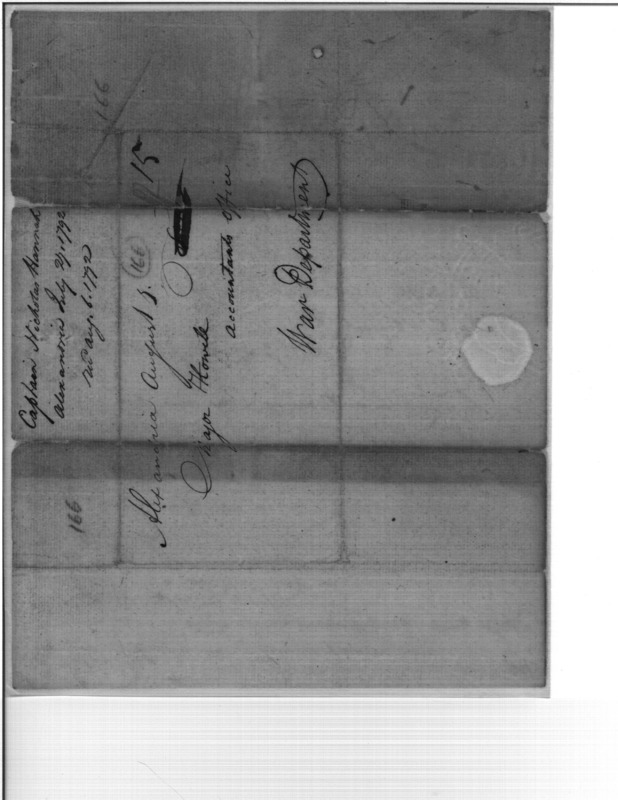 Captain Nicholas Hannah
Alexandria July 29. 1792
rec'd Aug. 6. 1792
166
166
Alexandria August 3.
166
15
Major Howell
accountants office
War Department